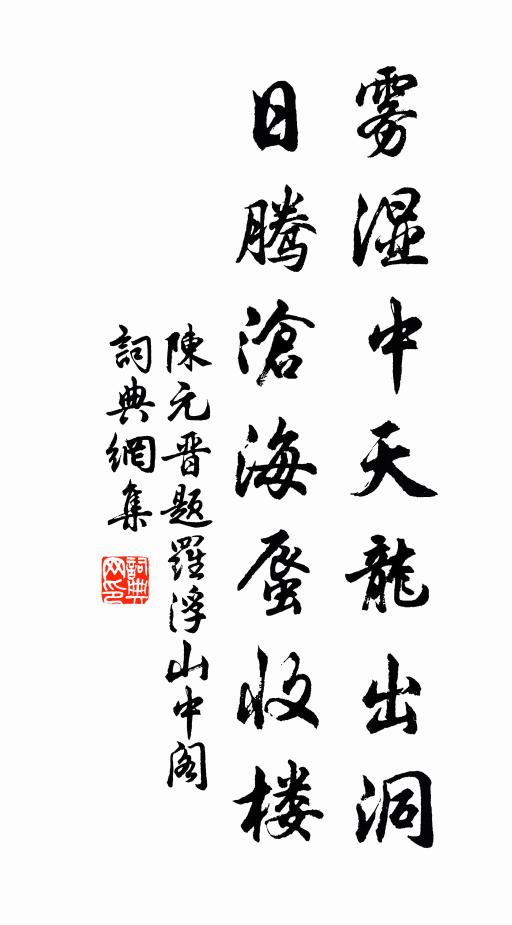 雾湿中天龍出洞
日腾滄海蜃收楼
陳元晋题羅浮山中阁
詞典網集
詞典网印